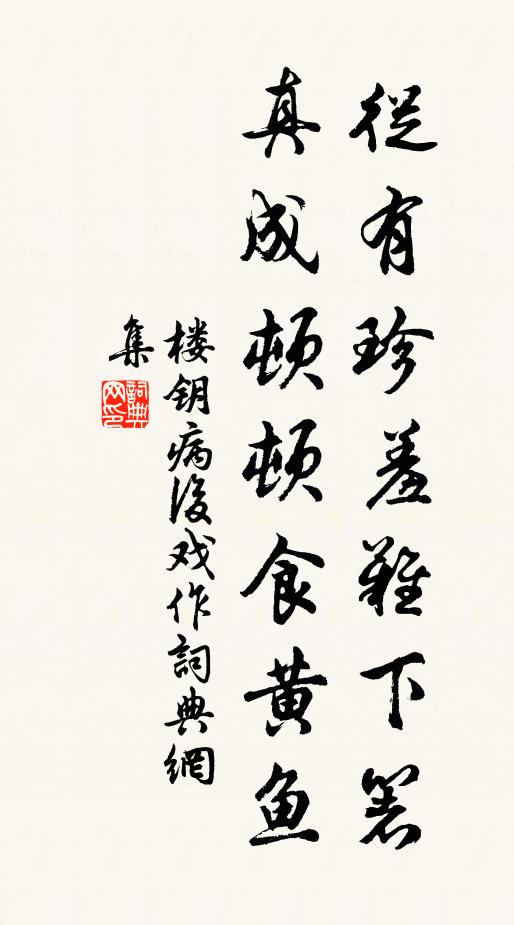 從有珍羞難下箸
真成頓頓食黄鱼
楼钥病後戏作詞典網
集
詞典网印